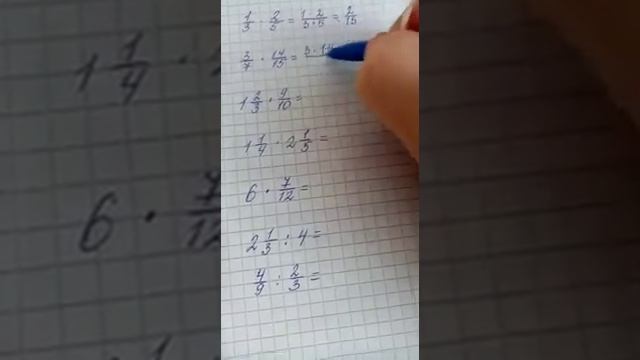 1/3 · 2/5 = 1·2/3·5 = 2/15
3/7 · 14/15 = 3·14
1 2/3 · 9/10 =
1 1/4 · 2 1/5 =
6 · 7/12 =
2 1/3 : 4 =
4/9 : 2/3 =